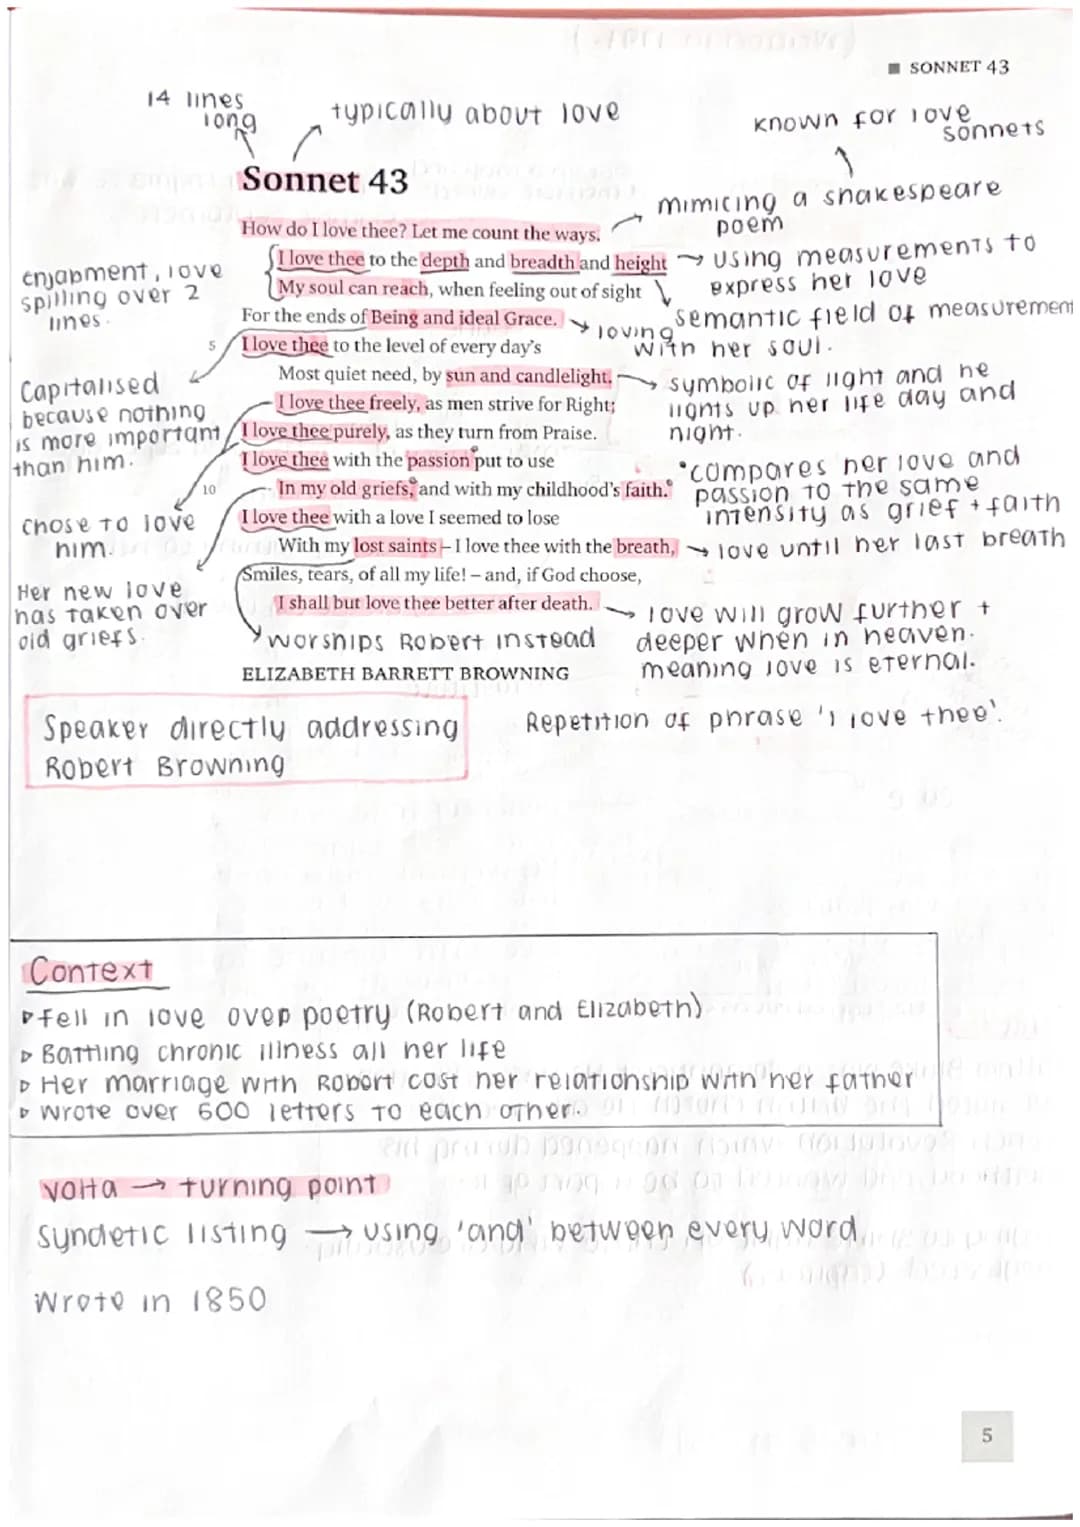 SONNET 43
14 lines
long
typically about love
known for love
sonnets
Sonnet 43
mimicing a shakespeare
poem
How do I love thee? Let me count the ways.
I love thee to the depth and breadth and height
using measurements to
express her love
enjabment, love
spilling over 2
lines.
My soul can reach, when feeling out of sight
semantic field of measurement
For the ends of Being and ideal Grace.
loving
with her soul.
5
I love thee to the level of every day's
Most quiet need, by sun and candlelight.
symbolic of light and he
lights up her life day and
night.
Capitalised
because nothing
is more important
than him.
I love thee freely, as men strive for Right;
I love thee purely, as they turn from Praise.
I love thee with the passion put to use
10
In my old griefs, and with my childhood's faith.
*compares her love and
passion to the same
intensity as grief + faith
chose to love
him.
I love thee with a love I seemed to lose
With my lost saints – I love thee with the breath,
love until her last breath
Her new love
has taken over
old griefs.
Smiles, tears, of all my life! – and, if God choose,
I shall but love thee better after death.
love will grow further +
deeper when in heaven.
meaning love is eternal.
worships Robert instead
ELIZABETH BARRETT BROWNING
Speaker directly addressing
Robert Browning
Repetition of phrase 'I love thee'.
Context
fell in love over poetry (Robert and Elizabeth)
Battling chronic illness all her life
Her marriage with Robert cost her relationship with her father
wrote over 600 letters to each other.
volta → turning point
Syndetic listing → using 'and' between every word
Wrote in 1850
5